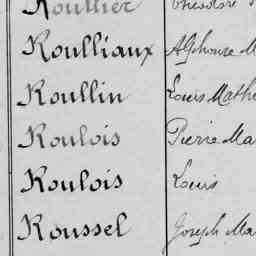 Roullier Théodore
Roulliaux Alphonse M
Roullin Louis Math
Roulois Pierre Ma
Roulois Louis
Roussel Joseph Ma